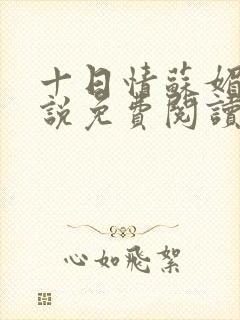 十日情蘇媚
說免費閱讀
心如飛絮